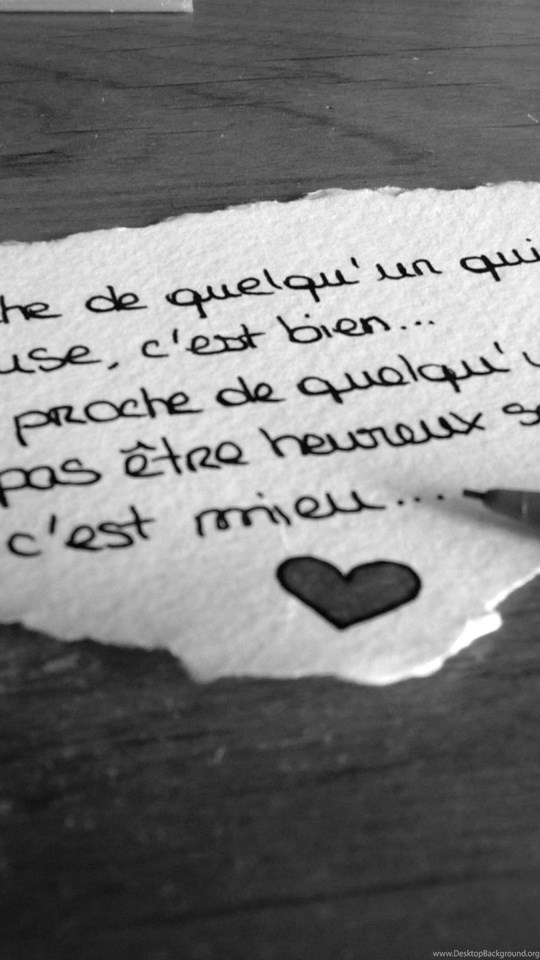 de quelqu'un qui
c'est bien...
proche de quelqu'
pas être heureux
c'est mieu....
www.DesktopBackground.org